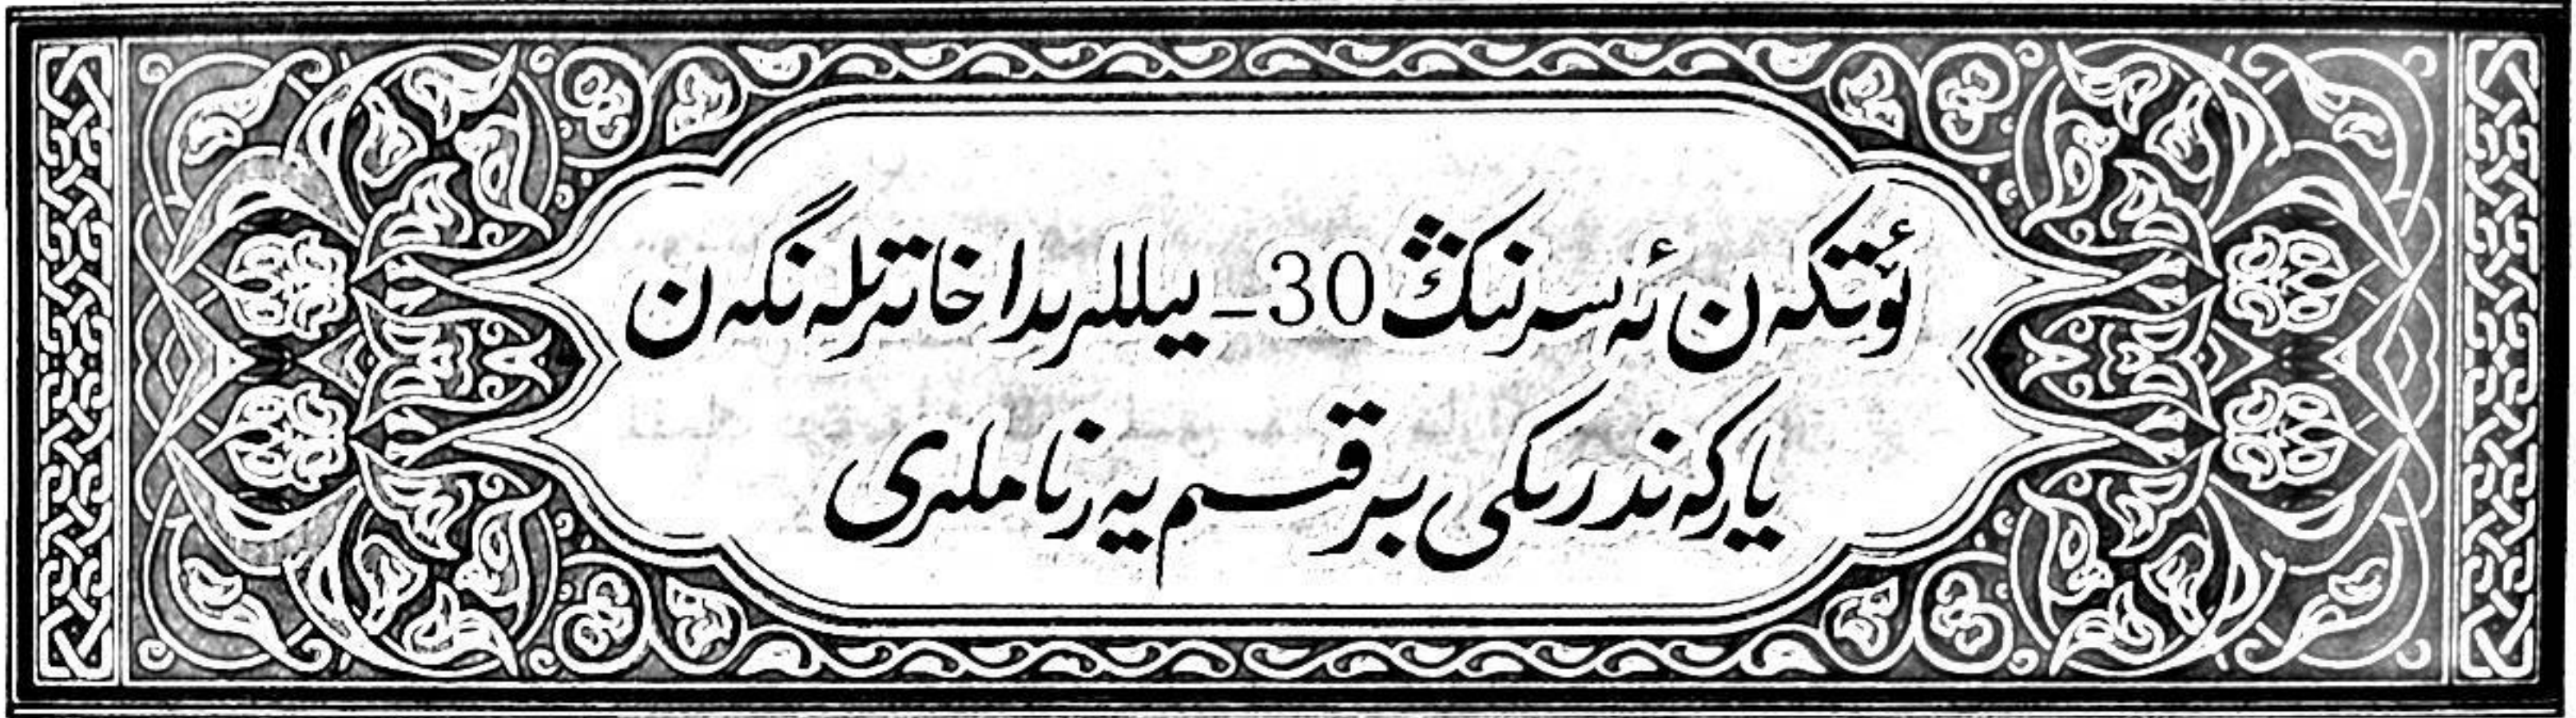 ئۆتكەن ئەسىرنىڭ 30-يىللىرىدا خاتىرىلەنگەن
ياركەندرىكى بىر قىسىم يەرناملىرى